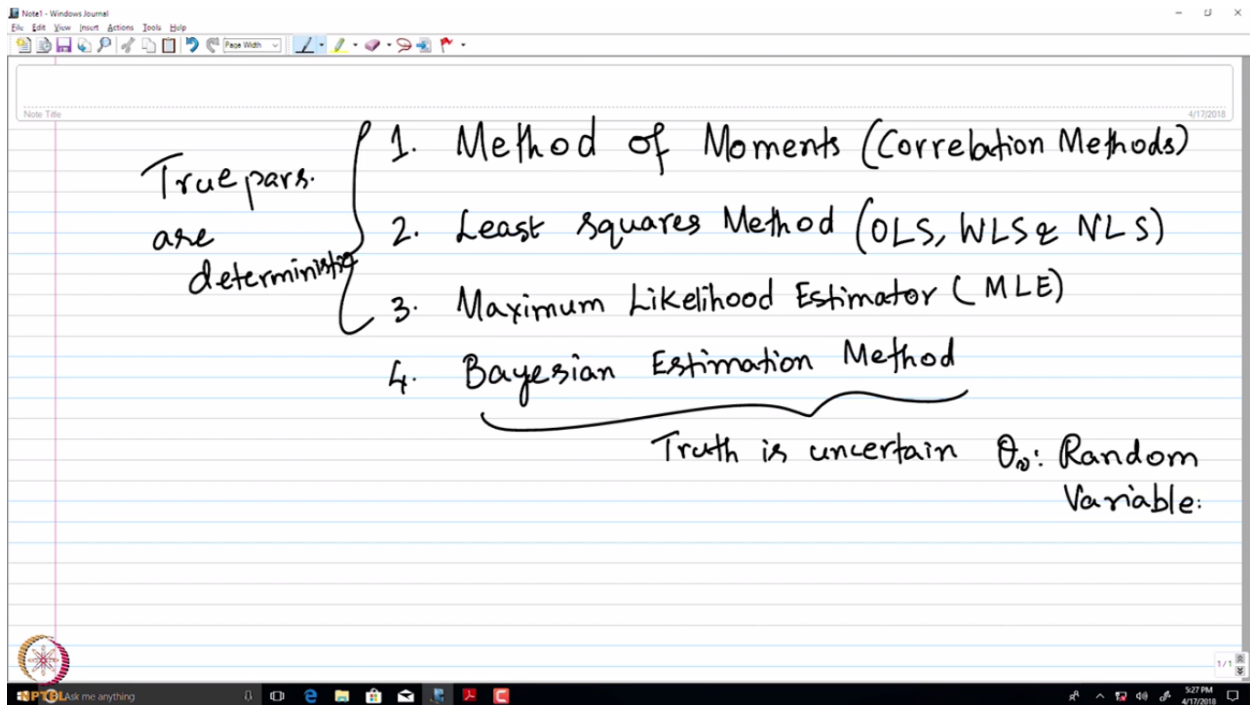 Note1 - Windows Journal
File Edit View Insert Actions Tools Help
Page Width
Note Title
4/17/2018
1. Method of Moments (Correlation Methods)
True pars.
are
deterministic
2. Least squares Method (OLS, WLS & NLS)
3. Maximum Likelihood Estimator (MLE)
4. Bayesian Estimation Method
Truth is uncertain θ₀: Random
Variable.
1/1
NPTEL
Ask me anything
5:27 PM
4/17/2018